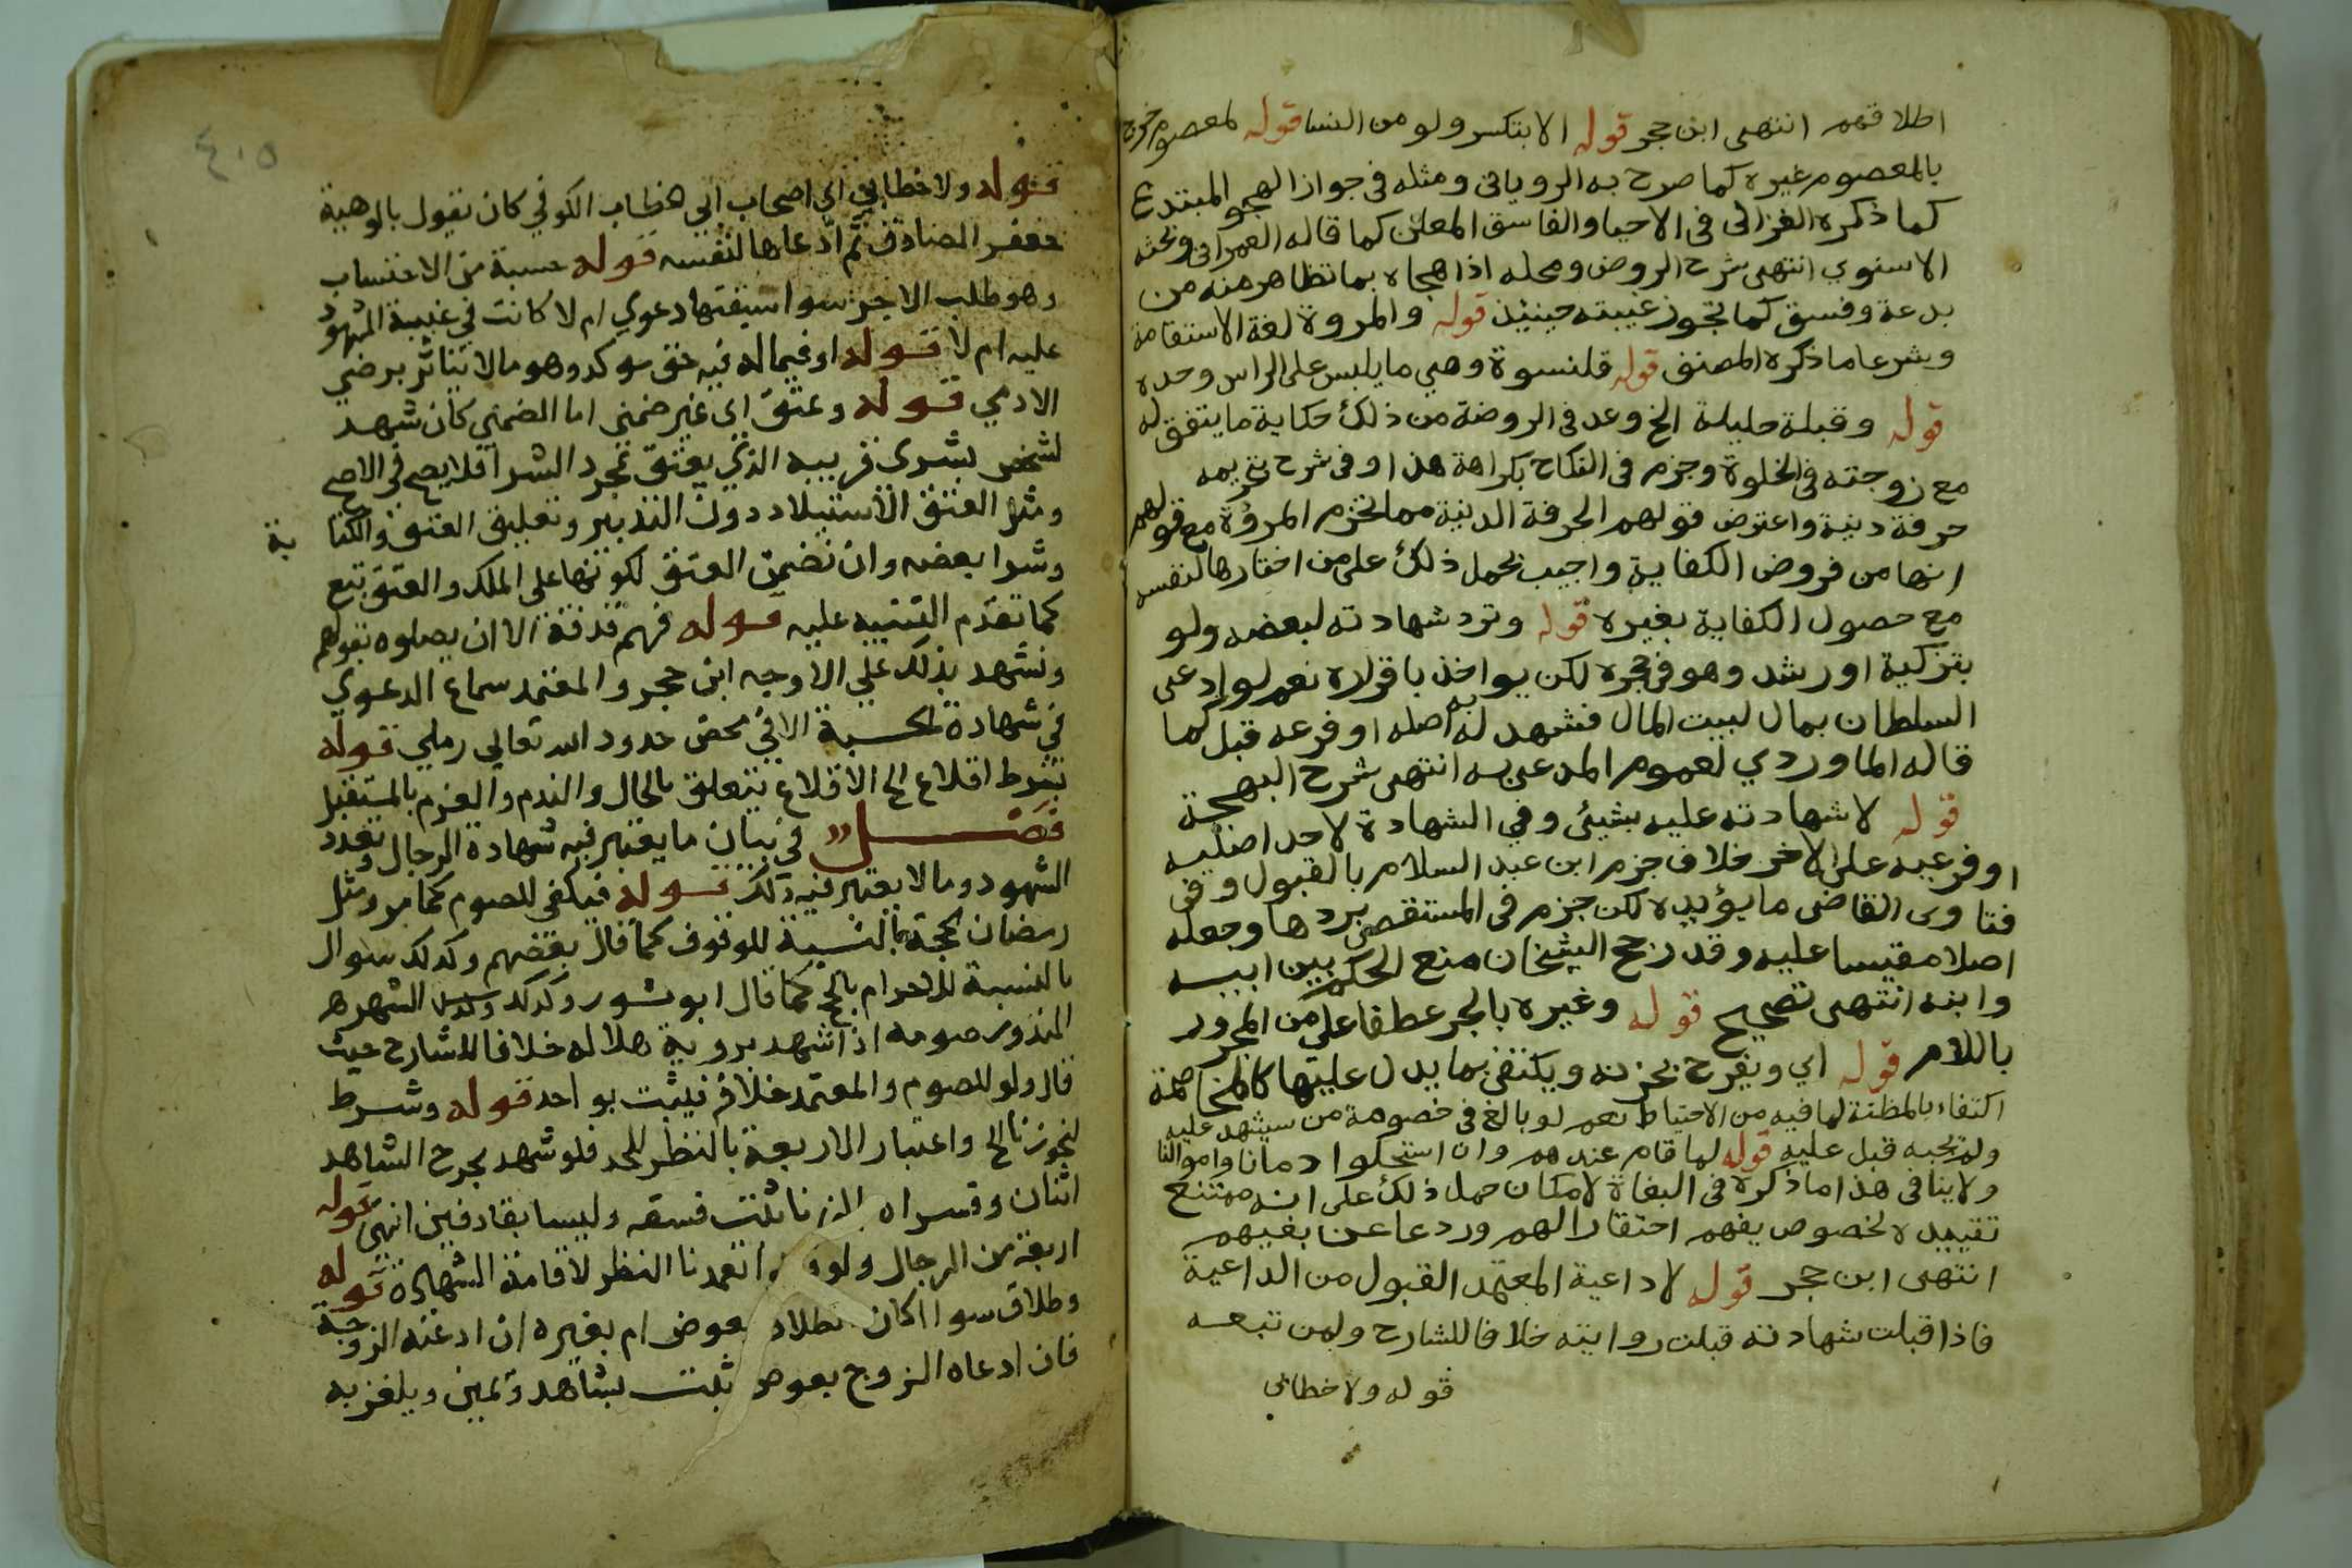 اطلاقهم انتهى ابن حجر قوله الا بتكسر ولو من النسا قوله لمعصوم خرج
بالمعصوم غيره كما صرح به الروياني ومثله في جواز الهجو المبتدع
كما ذكره الغزالي في الاحيا والفاسق المعلن كما قاله العمراني وبحثه
الاسنوي انتهى شرح الروض ومحله اذا هجاه بما تظاهر منه من
بدعة وفسق كما تجوز غيبته حينئذ قوله والمروة لغة الاستقامة
وشرعا ما ذكره المصنف قوله قلنسوة وهي ما يلبس على الراس وحده
قوله وقبلة حليلة الخ وعد في الروضة من ذلك حكاية ما يتفق له
مع زوجته في الخلوة وجزم في النكاح بكراهة هذا وفي شرح م بتحريمه
حرفة دنية واعترض قولهم الحرفة الدنية مما تخرم المروة مع قولهم
انها من فروض الكفاية واجيب بحمل ذلك على من اختارها لنفسه
مع حصول الكفاية بغيره قوله وترد شهادته لبعضه ولو
بتزكية او رشد وهو في حجره لكن يواخذ باقراره نعم لو ادعى
السلطان بمال لبيت المال فشهد له به اصله او فرعه قبل كما
قاله الماوردي لعموم المدعى به انتهى شرح البهجة
قوله لا شهادته عليه بشيئ وفي الشهادة لاحد اصليه
او فرعيه على الاخر خلاف جزم ابن عبد السلام بالقبول وفي
فتاوى القاضي ما يؤيده لكن جزم في المستقصى بردها وجعله
اصلا مقيسا عليه وقد رجح الشيخان منع الحكم بين ابيه
وابنه انتهى تصحيح قوله وغيره بالجر عطفا على من المجرور
باللام قوله اي ويفرح بحزنه ويكتفى بما يدل عليها كالمخاصمة
اكتفاء بالمظنة لما فيه من الاحتياط نعم لو بالغ في خصومة من سيشهد عليه
ولم يجبه قبل عليه قوله لما قام عندهم وان استحلوا دمانا واموالنا
ولا ينافي هذا ما ذكره في البغاة لامكان حمل ذلك على انه ممتنع
تقييده لخصوص بغيهم احتقارا لهم وردعا عن بغيهم
انتهى ابن حجر قوله لا داعية المعتمد القبول من الداعية
فاذا قبلت شهادته قبلت روايته خلافا للشارح ولمن تبعه
قوله ولا خطابي
٤١٥
قوله ولا خطابي اي اصحاب ابي خطاب الكوفي كان يقول بالوهية
جعفر الصادق ثم ادعاها لنفسه قوله حسبة من الاحتساب
وهو طلب الاجر سوا سبقتها دعوي ام لا كانت في غيبة المشهود
عليه ام لا قوله او فيما له فيه حق موكد وهو ما لا يتاثر برضي
الادمي قوله وعتق اي غير ضمني اما الضمني كان شهد
لشخص بشرى قريبه الذي يعتق بمجرد الشرا فلا يصح في الاصح
ومثل العتق الاستيلاد دون التدبير وتعليق العتق والكتا بة
وشرا بعضه وان تضمن العتق لكونها على الملك والعتق تبع
كما تقدم التنبيه عليه قوله فهم قذفة الا ان يصلوه بقولهم
ونشهد بذلك علي الاوجه ابن حجر والمعتمد سماع الدعوي
في شهادة الحسبة الا في محض حدود الله تعالي رملي قوله
بشرط اقلاع الخ الاقلاع يتعلق بالحال والندم والعزم بالمستقبل
فصل في بيان ما يعتبر فيه شهادة الرجال وتعدد
الشهود وما لا يعتبر فيه ذلك قوله فيكفي للصوم كما مر ومثل
رمضان الحجة بالنسبة للوقوف كما قال بعضهم وكذلك شوال
بالنسبة للاحرام بالحج كما قال ابو شور وكذلك الشهرة
المنذور صومه اذا شهد بروية هلاله خلافا للشارح حيث
قال ولو للصوم والمعتمد خلافه فيثبت بواحد قوله وشرط
لنحو زنا الخ واعتبار الاربعة بالنظر للحد فلو شهد بجرح الشاهد
اثنان وفسراه بالزنا ثبت فسقه وليسا بقادفين انتهى قوله
اربعة من الرجال ولو تعمدنا النظر لاقامة الشهادة قوله
وطلاق سوا اكان بعوض ام بغيره ان ادعته الزوجة
فان ادعاه الزوج بعوض ثبت بشاهد ويمين ويلغز به